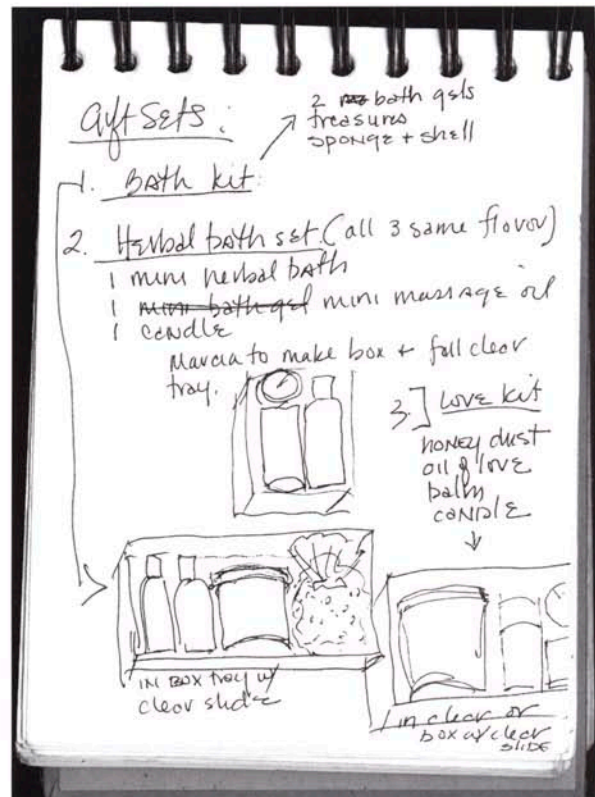 Gift Sets:
2 bath gels
treasures
sponge + shell
1. Bath kit
2. Herbal bath set. (all 3 same flavor)
1 mini herbal bath
1 mini bath gel mini massage oil
1 candle
Marcia to make box + full clear
tray.
3.] Love Kit
honey dust
oil of love
balm
candle
in box tray w/
clear slide
in clear or
box w/ clear
slide